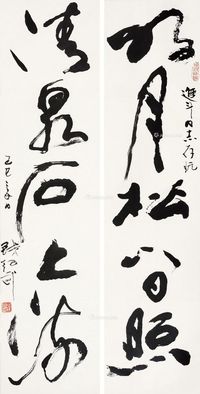 明月松间照
進斗同志存玩
清泉石上流
乙巳之月